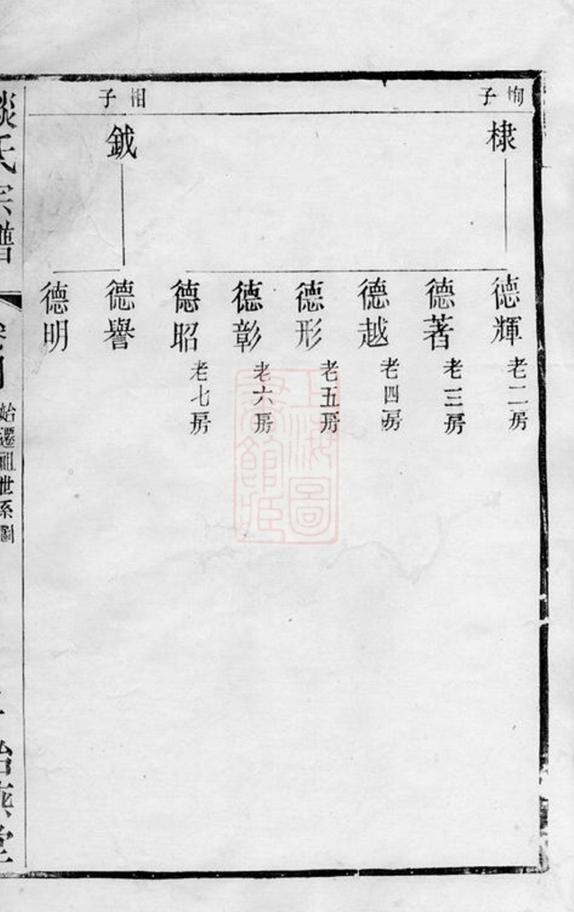 恂子
棣
德輝 老二房
德著 老三房
德越 老四房
德形 老五房
德彰 老六房
德昭 老七房
相子
鉞
德譽
德明
氏宗譜
始遷祖世系圖
上海圖書館藏